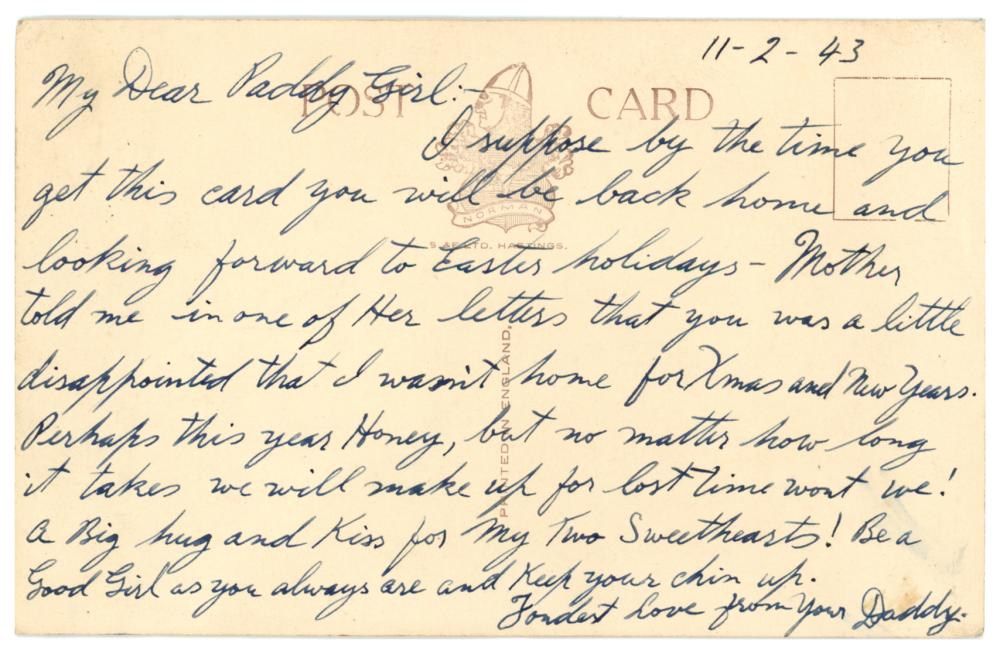 11-2-43
POST CARD
NORMAN
S. &E. LTD. HASTINGS.
PRINTED IN ENGLAND.
My Dear Paddy Girl:-
I suppose by the time you
get this card you will be back home and
looking forward to Easter holidays - Mother
told me in one of Her letters that you was a little
disappointed that I wasn't home for Xmas and New Years.
Perhaps this year Honey, but no matter how long
it takes we will make up for lost time wont we!
A Big hug and Kiss for My Two Sweethearts! Be a
Good Girl as you always are and Keep your chin up.
Fondest Love from Your Daddy.